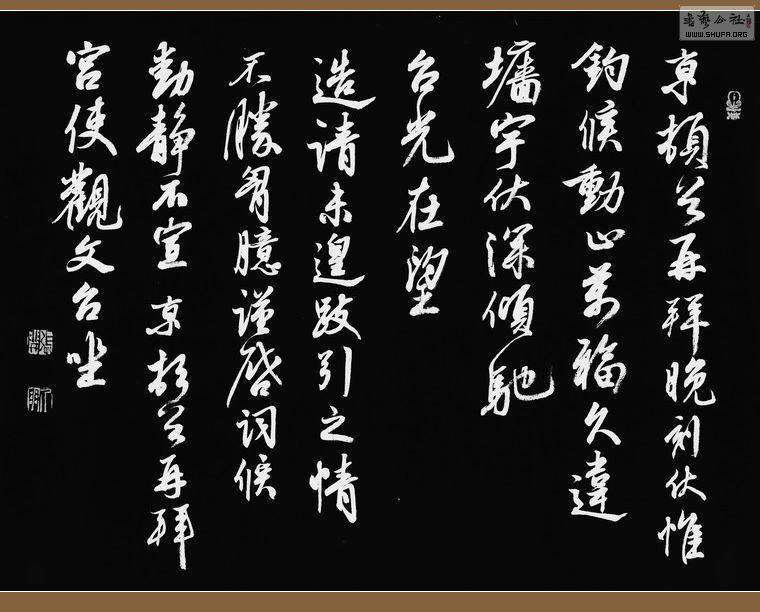 京頓首再拜晚刻伏惟
鈞候動止萬福久違
墻宇伏深傾馳
台光在望
造請未遑跂引之情
不勝胷臆謹啓詞候
動靜不宣 京頓首再拜
宮使觀文台坐
WWW.SHUFA.ORG